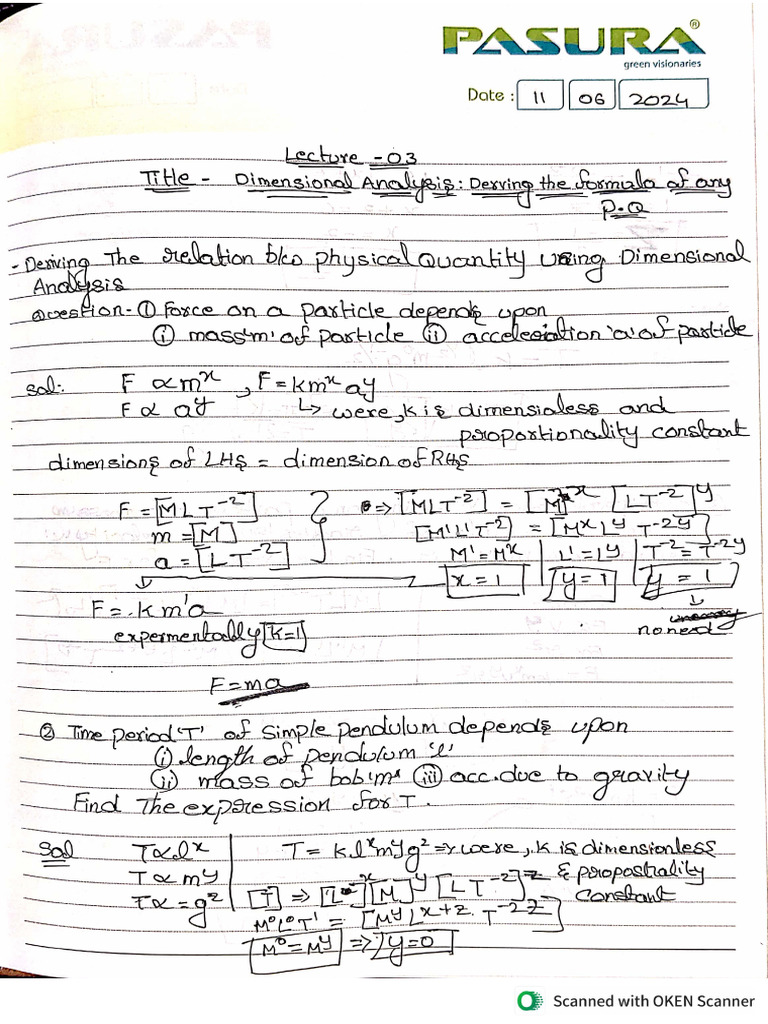 PASURA®
green visionaries
Date : 11 06 2024
Lecture - 03
Title - Dimensional Analysis: Derving the formala of any
P.Q
- Deriving The relation b/w physical Quantity using Dimensional
Analysis
Question- ① Force on a particle depends upon
(i) mass 'm' of particle (ii) acceleration 'a' of particle
sol:- F ∝ m^x , F = k m^x a^y
F ∝ a^y ↳ were, k is dimensioless and
proportionality constant
dimensions of LHS = dimension of RHS
F = [MLT^-2] => [MLT^-2] = [M]^x [LT^-2]^y
m = [M] [M^1L^1T^-2] = [M^x L^y T^-2y]
a = [LT^-2] M^1 = M^x | L^1 = L^y | T^-2 = T^-2y
x = 1 | y = 1 | y = 1
F = k m^1 a
expermentally k=1 no need
F = ma
② Time period 'T' of simple pendulum depends upon
(i) length of pendulum 'l'
(ii) mass of bob 'm' (iii) acc. due to gravity
Find The expression for T.
Sol T ∝ l^x T = k l^x m^y g^z => were, k is dimensionless
T ∝ m^y & propostrality
T ∝ = g^z [T] => [L]^x [M]^y [LT^-2]^z constant
M^0L^0T^1 = [M^y L^x+z . T^-2z]
M^0 = M^y => y=0
Scanned with OKEN Scanner